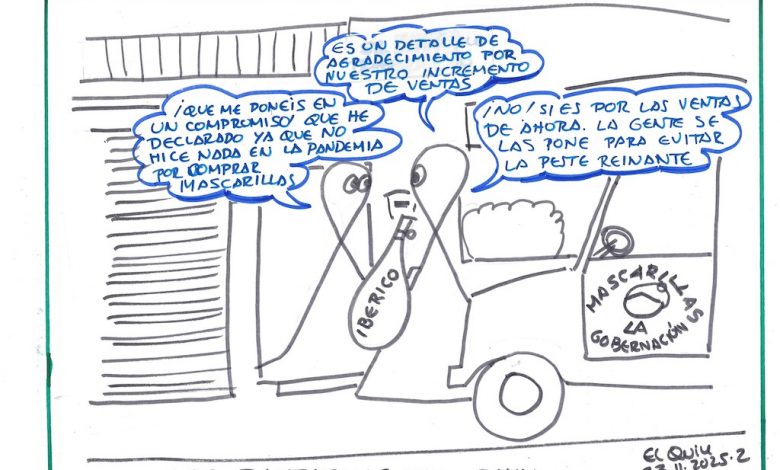 ES UN DETALLE DE
AGRADECIMIENTO POR
NUESTRO INCREMENTO
DE VENTAS
¡QUE ME PONEIS EN
UN COMPROMISO! QUE HE
DECLARADO YA QUE NO
HICE NADA EN LA PANDEMIA
POR COMPRAR
MASCARILLAS
¡NO! SI ES POR LAS VENTAS
DE AHORA. LA GENTE SE
LAS PONE PARA EVITAR
LA PESTE REINANTE
IBERICO
MASCARILLAS
LA
GOBERNACIÓN
EL QUIU
.11.2025.2